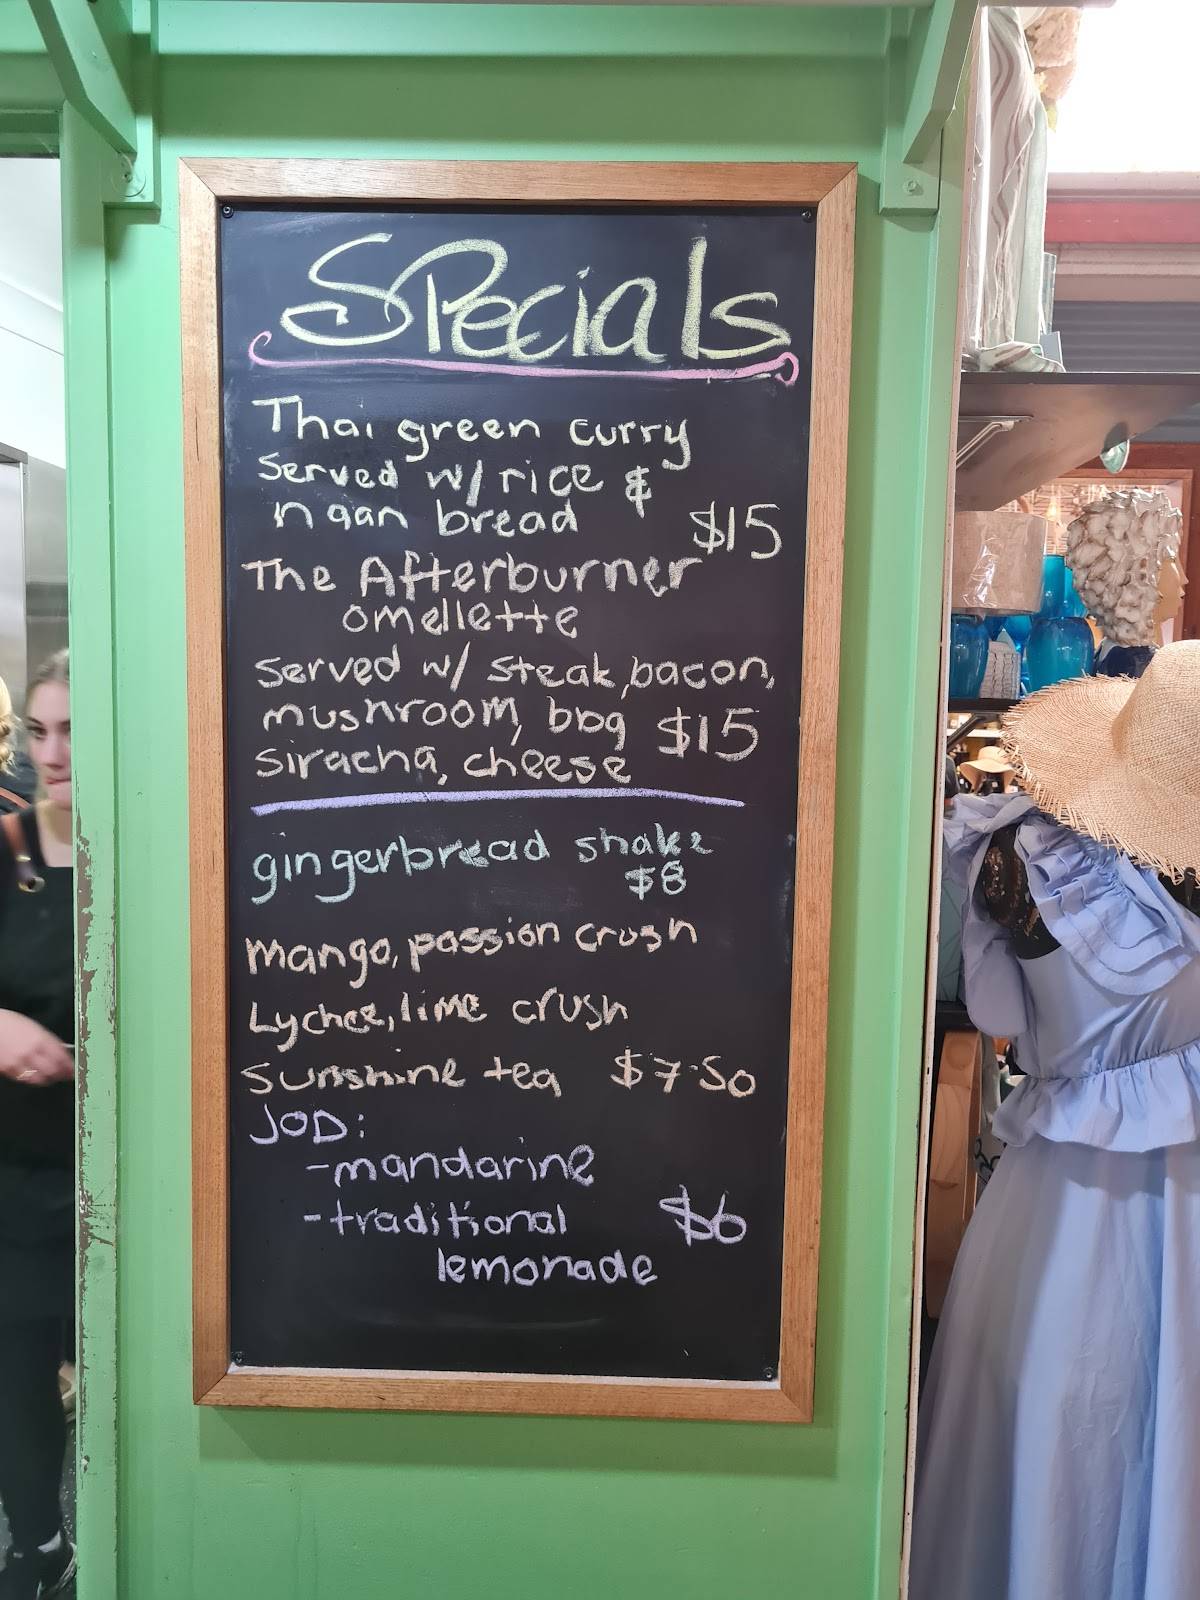 Specials
Thai green curry
served w/ rice &
naan bread $15
The Afterburner
omellette
served w/ steak, bacon,
mushroom, bbq $15
siracha, cheese
gingerbread shake
$8
Mango, passion crush
Lychee, lime crush
Sunshine tea $7.50
JOD:
- mandarine
- traditional $6
lemonade